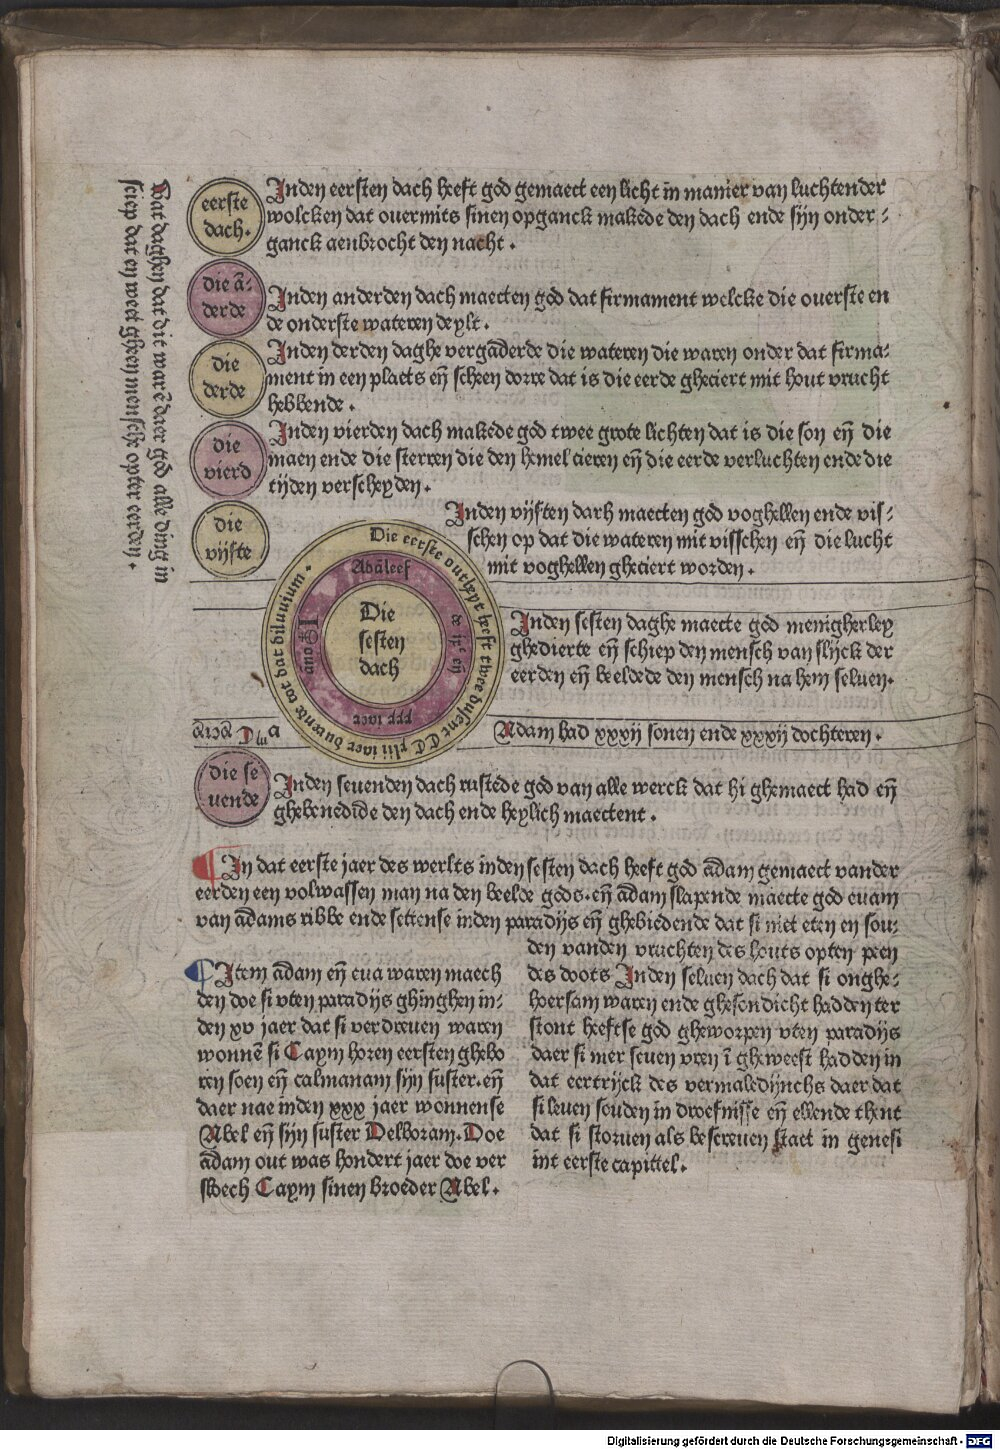 Wat daghen dat dit warē daer god alle ding in
sciep dat en weet gheen mensche opter eerden.
eerste
dach.
Inden eersten dach heeft god gemaect een licht in manier van luchtender
wolcken dat ouermits sinen opganck makede den dach ende sijn onder-
ganck aenbrocht den nacht.
die ā-
derde
Inden anderden dach maecten god dat firmament welcke die ouerste en
de onderste wateren deylt.
die
derde
Inden derden daghe vergāderde die wateren die waren onder dat firma-
ment in een plaets eñ scheen dorre dat is die eerde gheciert mit hout vrucht
hebbende.
die
vierd
Inden vierden dach makede god twee grote lichten dat is die son eñ die
maen ende die sterren die den hemel cieren eñ die eerde verluchten ende die
tijden verscheyden.
die
vijfte
Inden vijften dach maecten god voghellen ende vis-
schen op dat die wateren mit visschen eñ die lucht
mit voghellen gheciert worden.
Die eerste outheyt heeft twee dusent CC xlii iaer durende tot dat diluuium.
Adā leef
de ixc eñ
xxx iaer
Die
sesten
dach
Inden sesten daghe maecte god menigherley
ghedierte eñ schiep den mensch van slijck der
eerden eñ beeldede den mensch na hem seluen.
Adam had xxxij sonen ende xxxij dochteren.
die se
uende
Inden seuenden dach rustede god van alle werck dat hi ghemaect had eñ
ghebenedide den dach ende heylich maectent.
In dat eerste jaer des werlts inden sesten dach heeft god adam gemaect vander
eerden een volwassen man na den beelde gods. eñ adam slapende maecte god euam
van adams ribbe ende settense inden paradijs eñ ghebiedende dat si niet eten en sou-
den vanden vruchten des houts opten peen
des doots Inden seluen dach dat si onghe-
hoersam waren ende ghesondicht hadden ter
stont heeftse god gheworpen vten paradijs
daer si mer seuen vren ī gheweest hadden in
dat eertrijck des vermaledijnchs daer dat
si leuen souden in droefnisse eñ ellende thent
dat si storuen als bescreuen staet in genesi
int eerste capittel.
Item adam eñ eua waren maech
den doe si vten paradijs ghinghen in-
den xv jaer dat si verdreuen waren
wonnē si Caym horen eersten ghebo
ren soen eñ calmanam sijn suster. eñ
daer nae inden xxx jaer wonnense
Abel eñ sijn suster Delboram. Doe
adam out was hondert jaer doe ver
sloech Caym sinen broeder Abel.
Digitalisierung gefördert durch die Deutsche Forschungsgemeinschaft - DFG